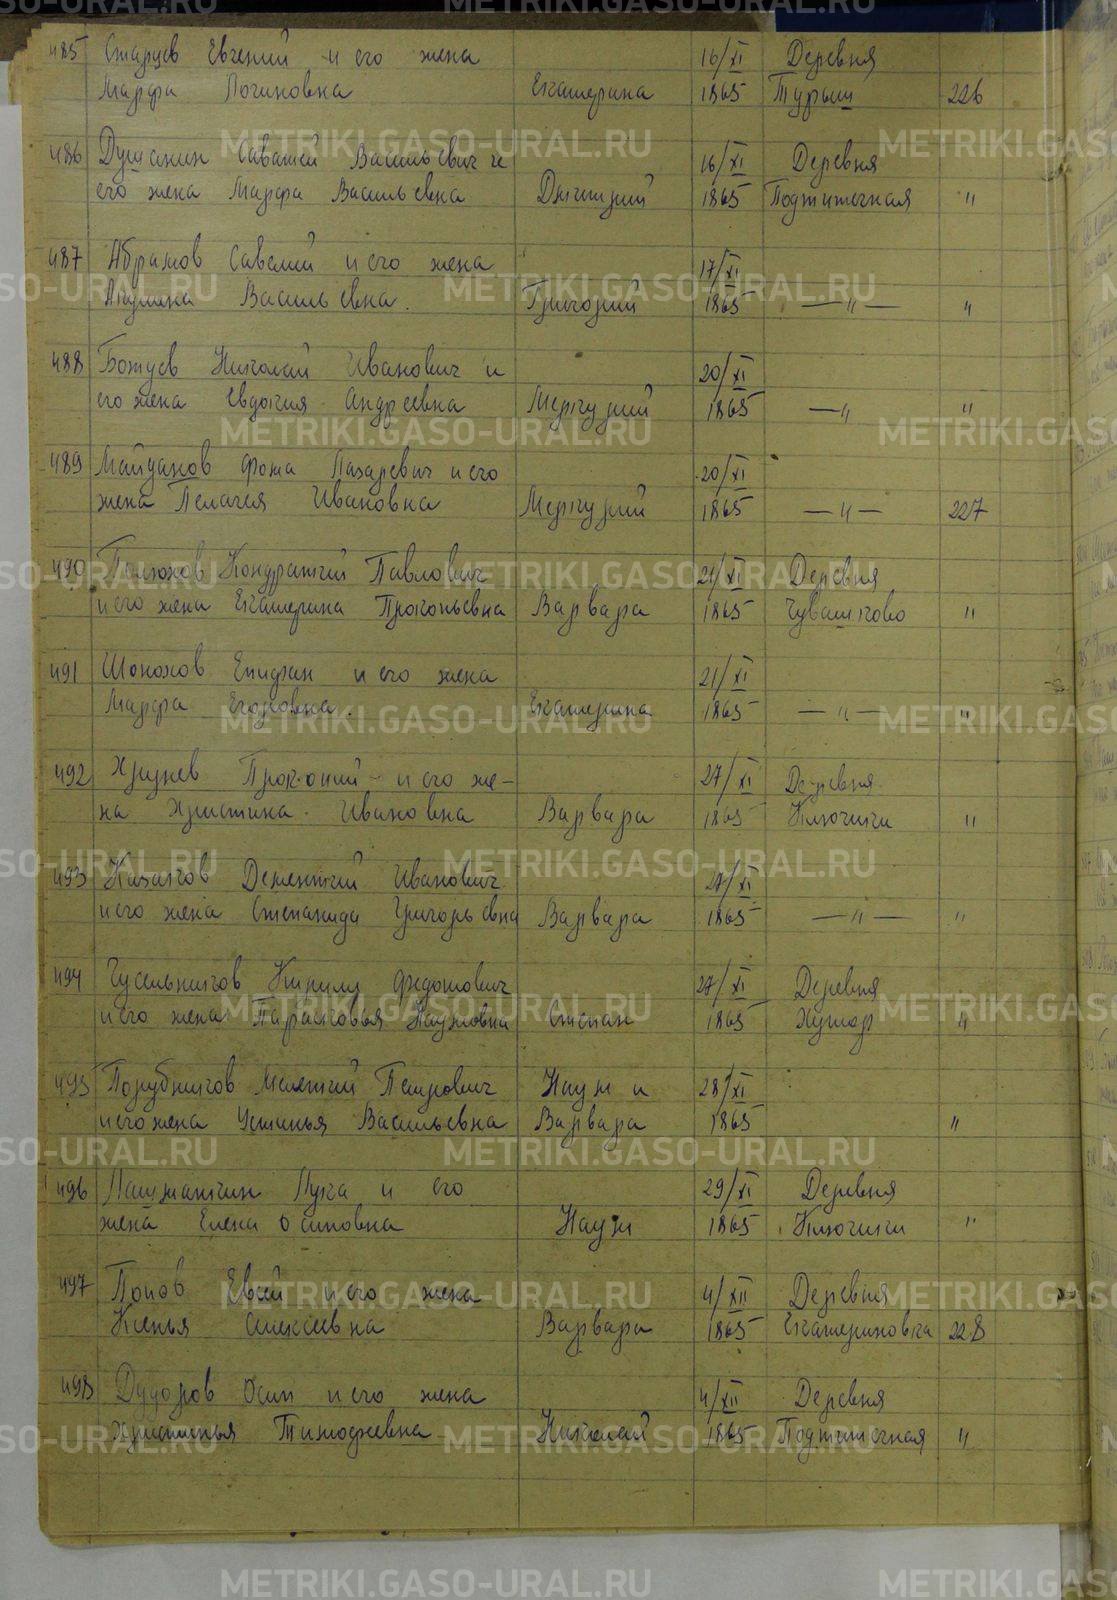 485 Старцев Евгений и его жена 16/XI Деревня
Марфа Логиновна Екатерина 1865 Турыш 226
486 Душанин Саватей Васильевич и 16/XI Деревня
его жена Марфа Васильевна Дмитрий 1865 Подтитечная "
487 Абрамов Савелий и его жена 17/XI
Акулина Васильевна. Григорий 1865 — " — "
488 Божуев Николай Иванович и 20/XI
его жена Евдокия Андреевна Меркурий 1865 — " "
489 Майданов Фома Лазаревич и его 20/XI
жена Пелагея Ивановна Меркурий 1865 — " — 227
490 Кондратий Павлович 21/XI Деревня
и его жена Екатерина Прокопьевна Варвара 1865 Чувашково "
491 Шонохов Епифан и его жена 21/XI
Марфа Егоровна. Екатерина 1865 — " — "
492 Хрунев Прокопий и его же- 27/XI Деревня
на Христина Ивановна Варвара 1865 Ключики "
493 Казаков Дементий Иванович 27/XI
и его жена Степанида Григорьевна Варвара 1865 — " — "
494 Гусельников Кирилл Федотович 27/XI Деревня
и его жена Парасковья Наумовна Степан 1865 Хутор "
495 Порубников Мелетий Петрович Наум и 28/XI
и его жена Устинья Васильевна Варвара 1865 "
496 Лашманкин Лука и его 29/XI Деревня
жена Елена Осиповна Наум 1865 Ключики "
497 Попов Евсей и его жена 4/XII Деревня
Ксенья Алексеевна Варвара 1865 Екатериновка 228
498 Дудоров Осип и его жена 4/XII Деревня
Христинья Тимофеевна Николай 1865 Подтитечная "
METRIKI.GASO-URAL.RU